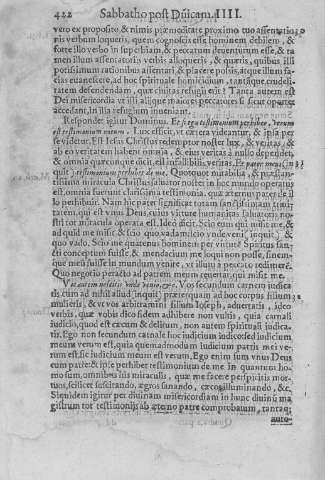 422 Sabbatho post Dñicam IIII.
vero ex proposito & nimis præmeditate proximo tuo assentatio
nis verbum loqueris, quem cognoscis esse hominem debilem, &
forte illo verbo in superbiam, & peccatum deventurum esse, & ta
men illum assentatoriis verbis alloqueris, & quæris, quibus illi
potissimum rationibus assentari & placere possis, atque illum fa-
cias euanescere, ad hoc spirituale homicidium, tantáque crudeli-
tatem defendendam, quæ civitas refugij erit? Tanta autem est
Dei misericordia vt illi aliique maiores peccatores si sicut oportet
accedant, in illa refugium inueniant.
Respondet igitur Dominus. Et si ego testimonium perhibeo, verum
est testimonium meum. Lux efficit, vt cætera videantur, & ipsa per
se videtur. Est Iesus Christus redemptor noster lux, & veritas, &
ab eo veritatem habent omnia, & eius veritas à nullo dependet,
& omnia quæcunque dicit, est infallibilis veritas. Et pater meus, in
quit, testimonium perhibet de me. Quotquot mirabilia, & potentis-
sima miracula Christus saluator noster in hoc mundo operatus
est, omnia fuerunt clarissima testimonia, quæ æternus pater de il
lo perhibuit. Nam hic pater significat totam sanctissimam trini-
tatem, qui est vnus Deus, cuius virtute humanitas saluatoris no-
stri tot miracula operata est. Ideo dicit. Scio eum qui misit me, &
ad quid me misit, & scio quo vadam. Scio vnde veni (inquit) &
quo vado. Scio me quatenus hominem per virtutẽ Spiritus san-
cti conceptum fuisse & mendacium me loqui non posse, finem-
que meũ fuisse in mundum venire, vt illum à peccato redimerẽ.
Quo negotio peracto ad patrem meum reuertar, qui misit me.
Vos autem nescitis vnde venio, &c. Vos secundum carnem iudica-
tis, cum ad nihil aliud (inquit) præterquam ad hoc corpus filium
mulieris, & vt vos arbitramini filium Ioseph, aduertatis, ideo
verbis, quæ vobis dico fidem adhibere non vultis, quia carnali
iudicio, quod est cæcum & debilium, non autem spirituali iudica-
tis. Ego non secundum carnale hoc iudicium iudico sed iudicium
meum verum est, quia quemadmodum iudicium patris mei ve-
rum est, sic iudicium meum est verum. Ego enim sum vnus Deus
cum patre: & ipse perhibet testimonium de me in quantum ho-
mo sum, omnibus suis miraculis, quæ me facere perspicitis mor-
tuos, scilicet suscitando, ægros sanando, cæcos illuminando, &c.
Siquidem igitur per diuinam misericordiam in hunc diuinũ ma
gistrum tot testimonijs ab æterno patre comprobatum, tantaq;
auto-